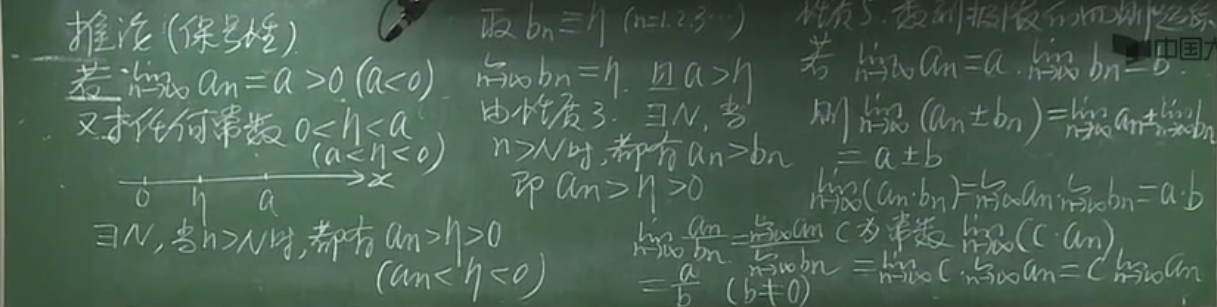 推论(保号性)
若 lim_{n→∞} an = a > 0 (a<0)
又对任何常数 0<η<a
(a<η<0)
0 η a x
∃N, 当n>N时, 都有 an>η>0
(an<η<0)
取 bn≡η (n=1.2.3…)
lim_{n→∞} bn = η. 且 a>η
由性质3. ∃N, 当
n>N时, 都有 an>bn
即 an>η>0
性质5. 数列极限的四则运算
若 lim_{n→∞} an = a. lim_{n→∞} bn = b.
则 lim_{n→∞} (an±bn) = lim_{n→∞} an ± lim_{n→∞} bn
= a±b
lim_{n→∞} (an·bn) = lim_{n→∞} an · lim_{n→∞} bn = a·b
lim_{n→∞} an/bn = lim_{n→∞} an / lim_{n→∞} bn
= a/b (b≠0)
C为常数 lim_{n→∞} (C·an)
= lim_{n→∞} C · lim_{n→∞} an = C lim_{n→∞} an
中国大